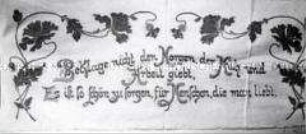 Beklage nicht den Morgen, der Müh und
Arbeit giebt,
Es ist so schön zu sorgen, für Menschen, die man liebt.